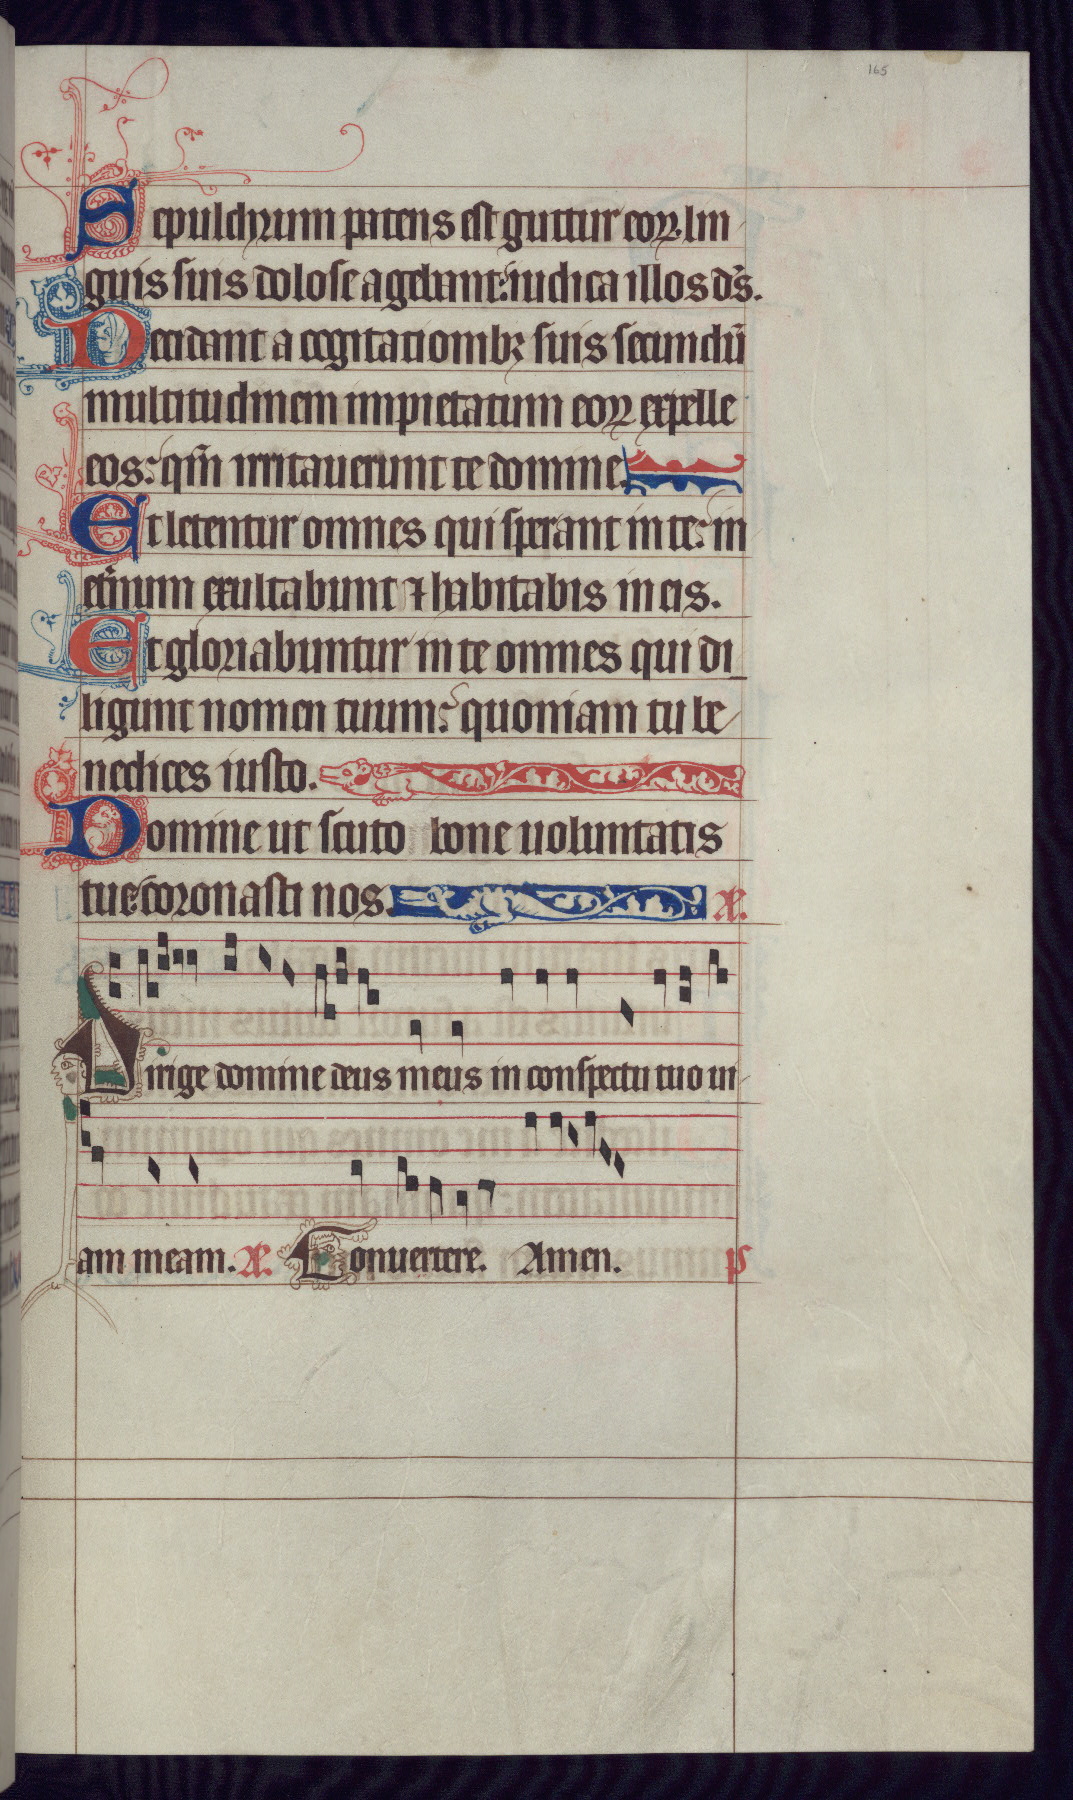 165
Sepulchrum patens est guttur eoꝝ. lin
guis suis dolose agebant: iudica illos dꝰs.
Decidant a cogitationibꝫ suis secundū
multitudinem impietatum eoꝝ expelle
eos: qm̄ irritauerunt te domine.
Et letentur omnes qui sperant in te: in
et̾num exultabunt ⁊ habitabis in eis.
Et gloriabuntur in te omnes qui di
ligunt nomen tuum: quoniam tu be
nedices iusto.
Domine ut scuto bone uoluntatis
tue: coronasti nos. A͞.
Dirige domine deus meus in conspectu tuo ui
am meam. A͞. Conuertere. Amen. p̄s